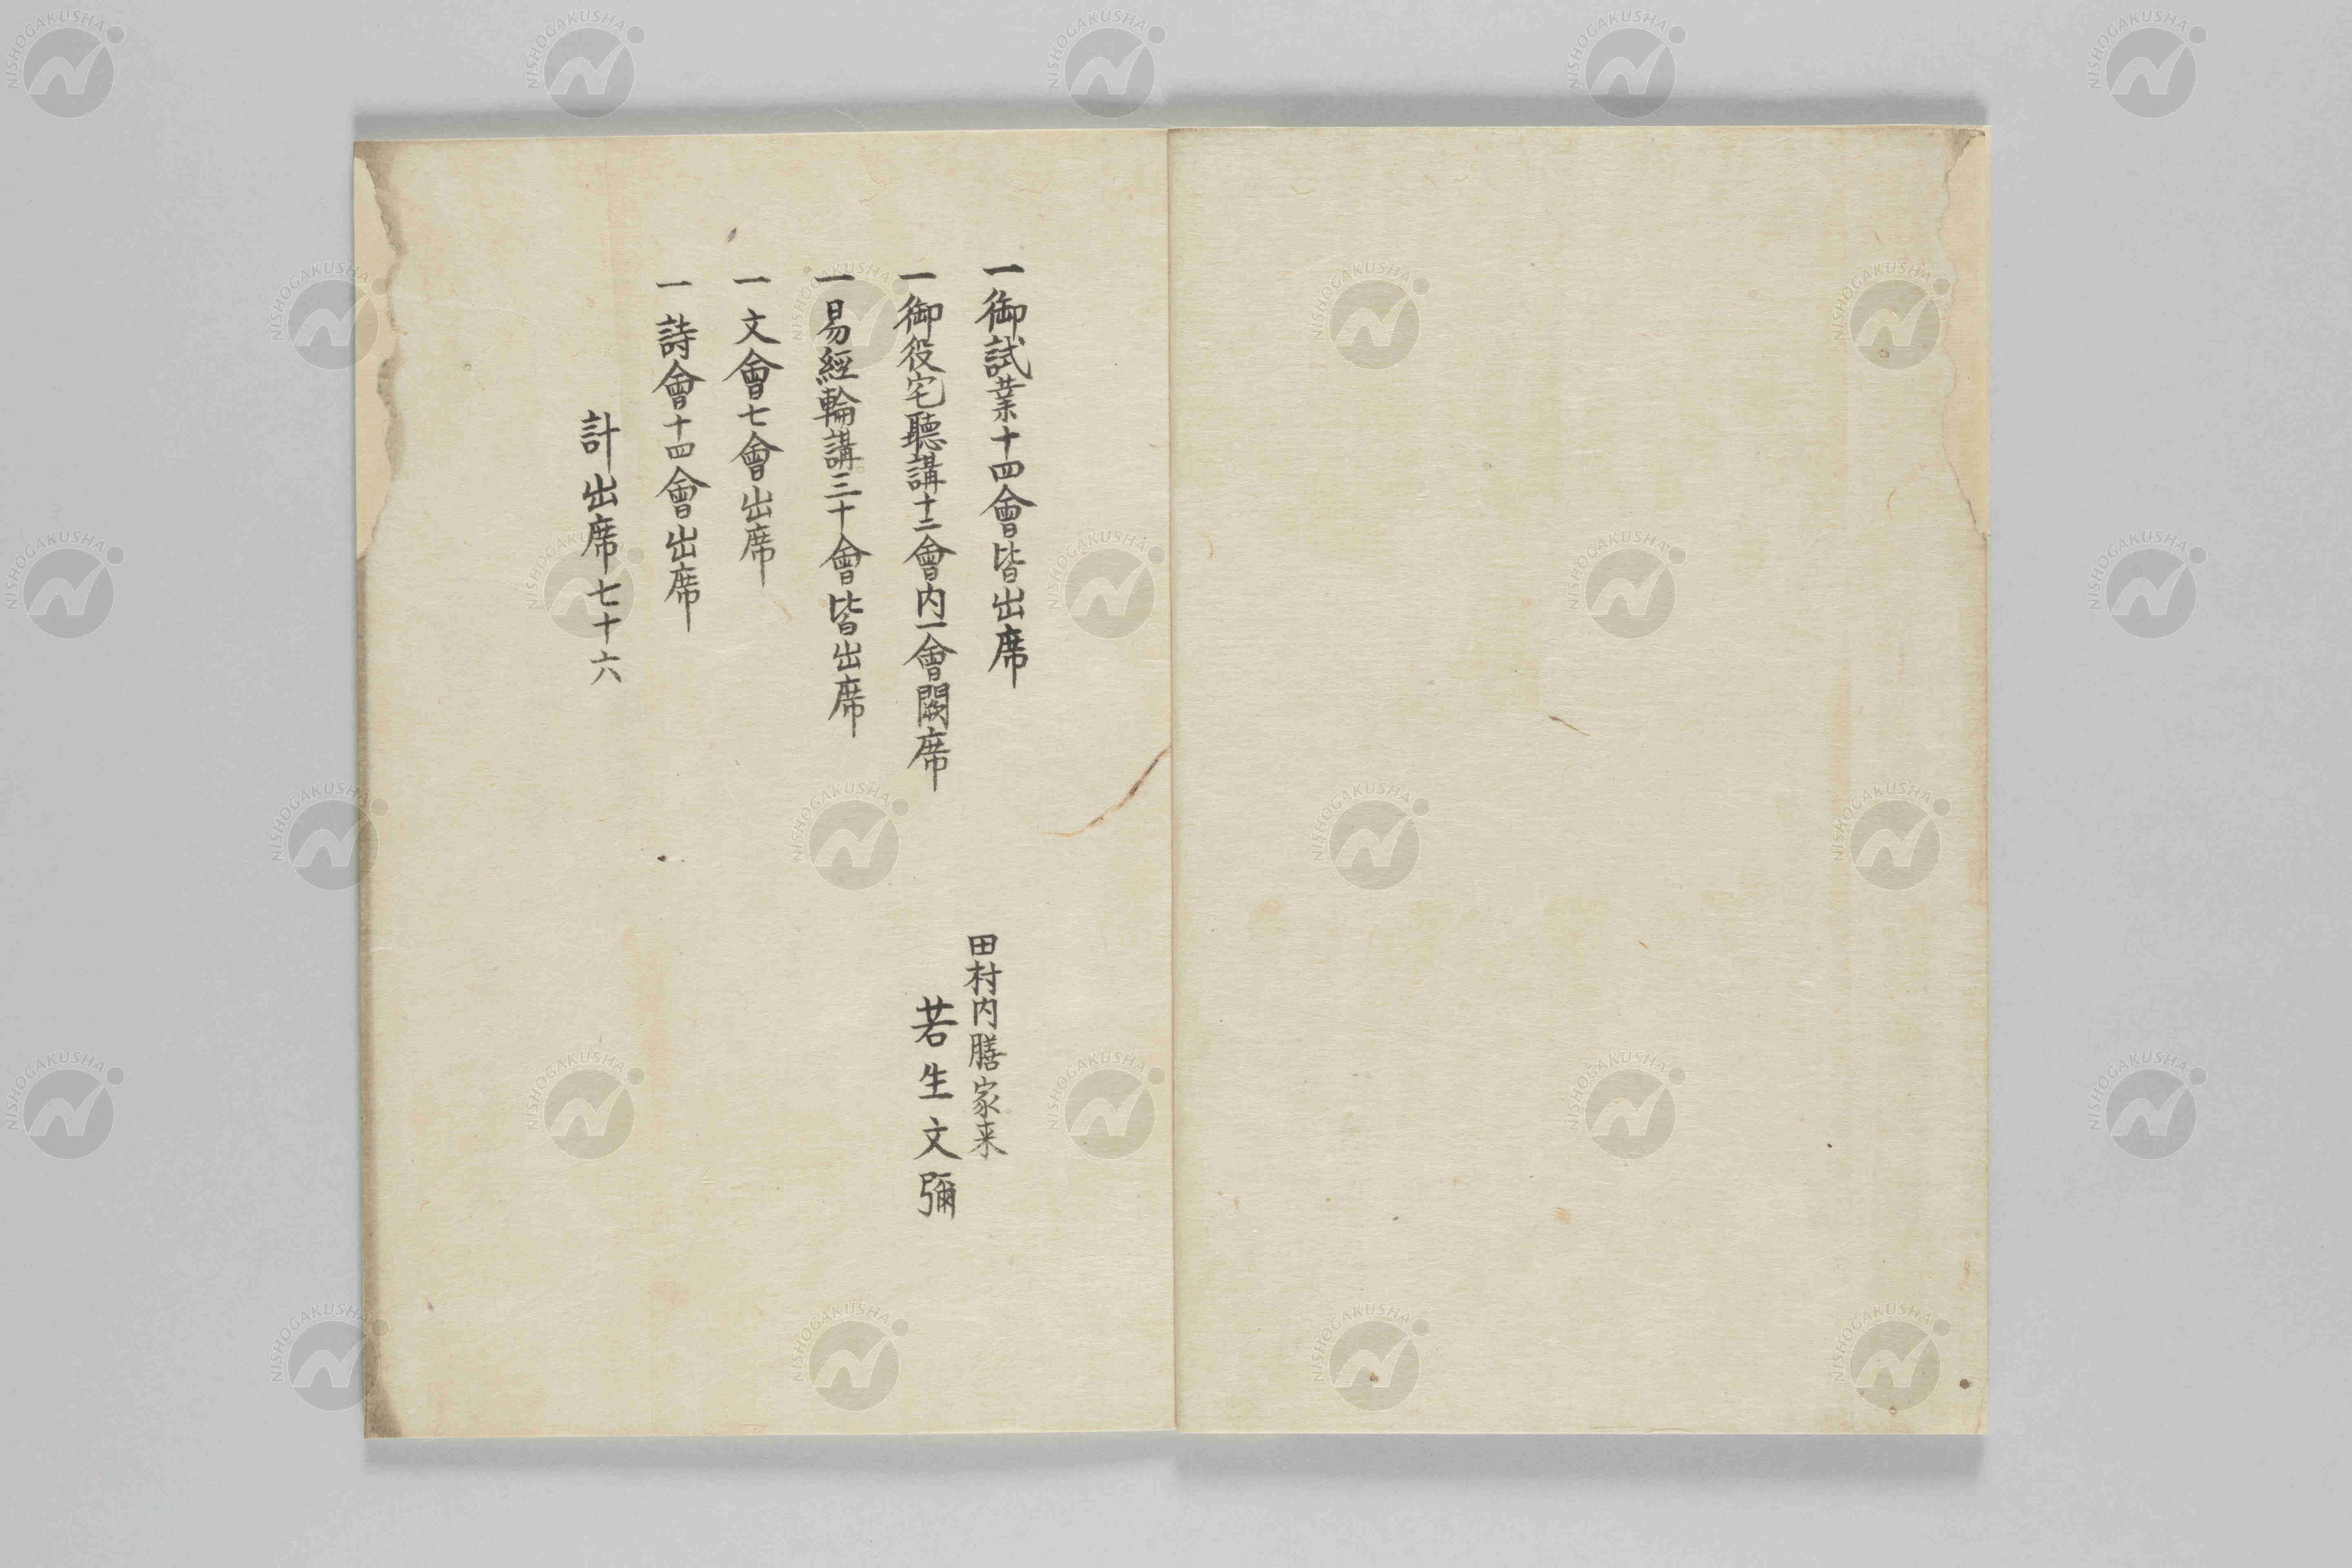 一御試業十四會皆出席
一御役宅聽講十二會内一會闕席
一易經輪講三十會皆出席
一文會七會出席
一詩會十四會出席
計出席七十六
田村内膳家来
若生文彌
NISHOGAKUSHA